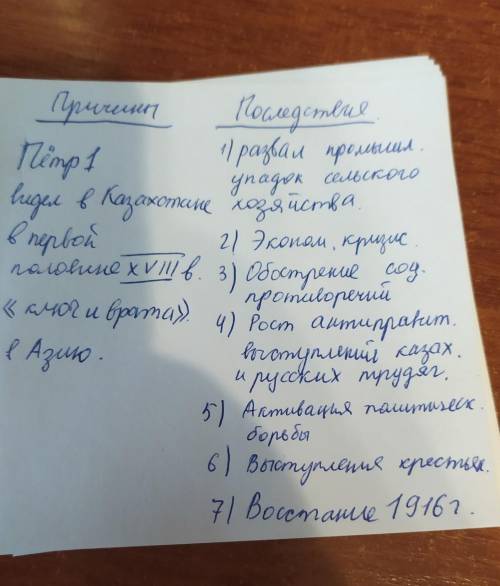 Причины
Пётр 1
видел в Казахстане
в первой
половине XVIII в.
«ключ и врата».
в Азию.
Последствия.
1) развал промышл.
упадок сельского
хозяйства.
2) Эконом. кризис.
3) Обострение соц.
противоречий
4) Рост антиправит.
выступлений казах.
и русских трудящ.
5) Активация политическ.
борьбы
6) Выступления крестьян.
7) Восстание 1916 г.